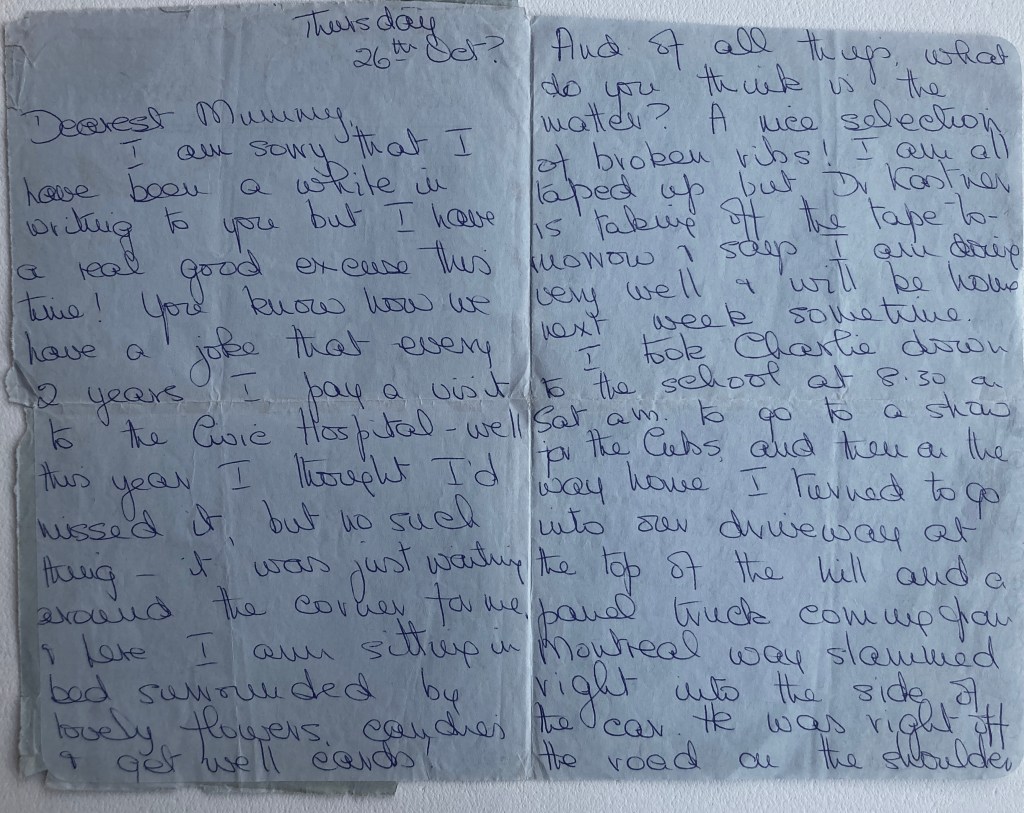 Thursday
26th Oct?
Dearest Mummy,
I am sorry that I
have been a while in
writing to you but I have
a real good excuse this
time! You know how we
have a joke that every
2 years I pay a visit
to the Civic Hospital - well
this year I thought I'd
missed it, but no such
thing - it was just waiting
around the corner for me
& here I am sitting in
bed surrounded by
lovely flowers, candies
& get well cards
And of all things, what
do you think is the
matter? A nice selection
of broken ribs! I am all
taped up but Dr Kastner
is taking off the tape to-
morrow & says I am doing
very well & will be home
next week sometime.
I took Charlie down
to the school at 8.30 on
Sat am. to go to a show
for the Cubs, and then on the
way home I turned to go
into our driveway at
the top of the hill and a
panel truck coming from
Montreal way slammed
right into the side of
the car. He was right off
the road on the shoulder